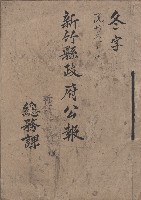 冬字
新竹縣政府公報
總務課